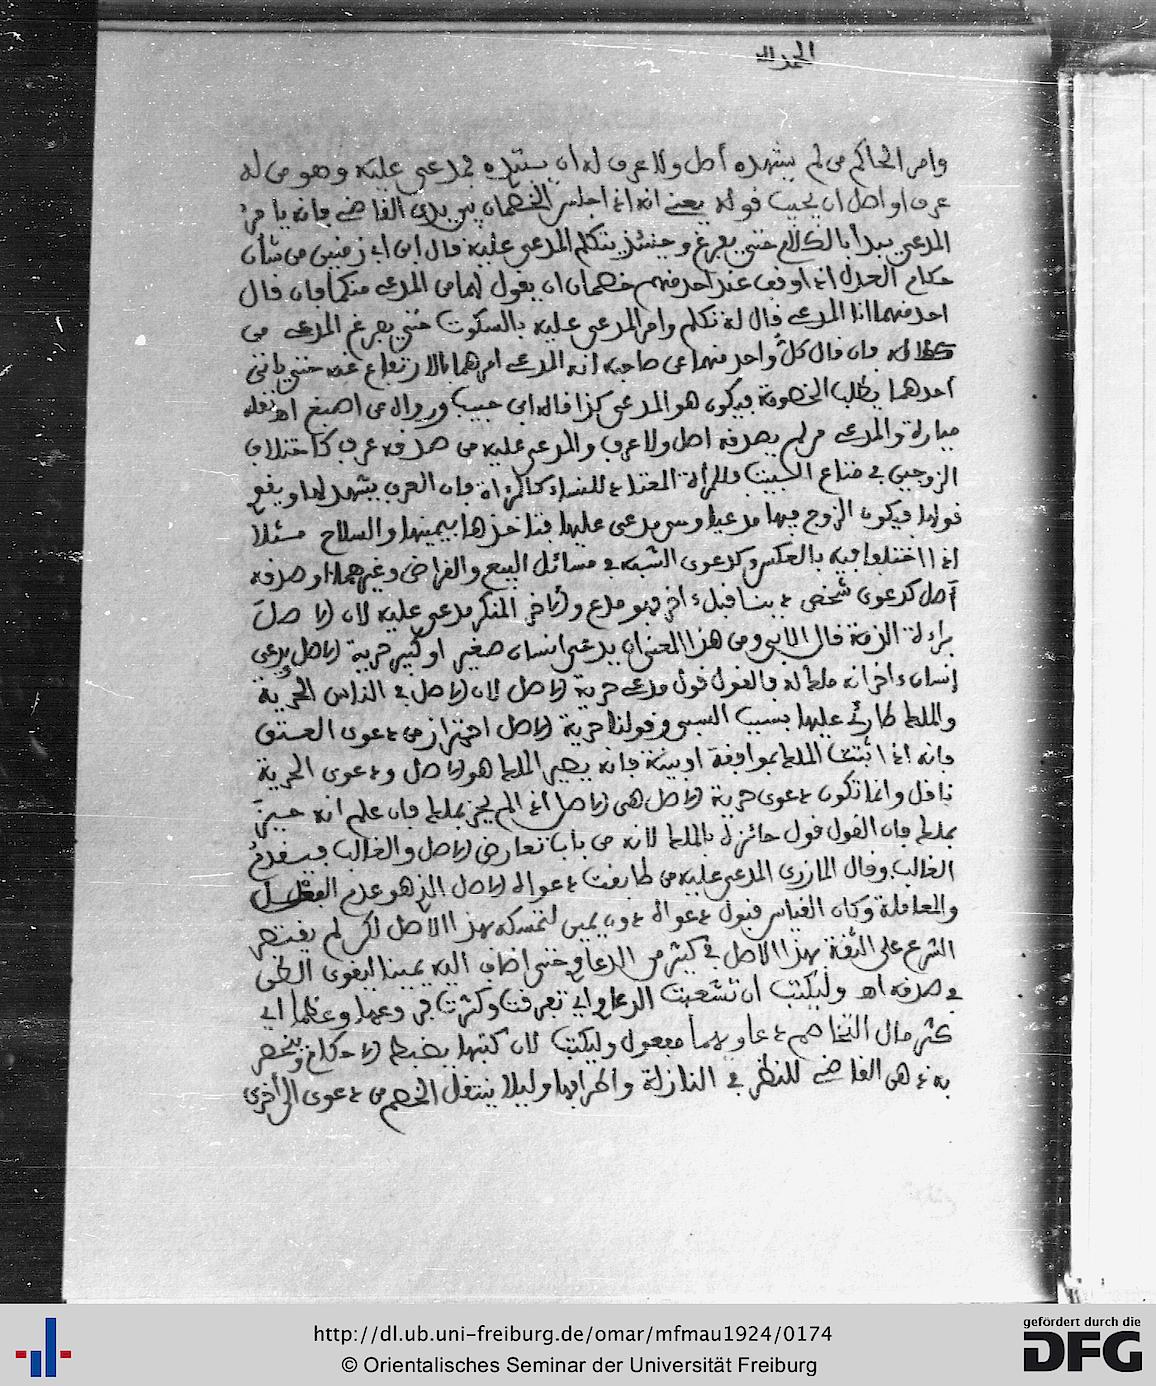 الحمد لله
وامر الحاكم من لم يشهد له أصل ولا عرف له ان يبتدئ مدعى عليه وهو من له
عرف او اصل ان يجيب قوله يعني انه اذا جلس الخصمان بين يدي القاضي فانه يامر
المدعي يبدأ بالكلام حتى يفرغ وحينئذ يتكلم المدعى عليه قال ابن ابي زمنين من شأن
حكام العدل اذا وقف عند احد منهم خصمان ان يقول لهما من المدعي منكما فان قال
احد منهما انا المدعي قال له تكلم وامر المدعى عليه بالسكوت حتى يفرغ المدعي من
فان قال كل واحد منهما عن صاحبه انه المدعي امرهما بالارتفاع عنه حتى ياتي
أحدهما يطلب الخصومة فيكون هو المدعي كذا قاله ابن حبيب ورواه عن اصبغ اهـ نقله
ميارة والمدعي من لم يصدقه اصل ولا عرف والمدعى عليه من صدقه عرف كاختلاف
الزوجين في متاع البيت فللمرأة المعتاد للنساء فان العرف يشهد لها ويقع
قولها فيكون الزوج فيها مدعيا وهي مدعى عليها فتاخذها بيمينها والسلاح مثلا
اذا اختلفا فيه بالعكس وكدعوى الشبه في مسائل البيع والقراض وغيرهما او صدقه
أصل كدعوى شخص دينا قبل ءاخر فهو مدع والاخر المنكر مدعى عليه لان الاصل
براءة الذمة قال الابي ومن هذا المعنى ان يدعي انسان صغير او كبير حرية الاصل ويدعي
إنسان ءاخر انه ملك له فالقول قول مدعي حرية الاصل لان الاصل في الناس الحرية
والملك طارئ عليها بسبب السبي وقولنا حرية الاصل احترازا من دعوى العتق
فانه اذا اثبتنا الملك بموافقة او بينة فانه يصير الملك هو الاصل ودعوى الحرية
ناقل وانما تكون دعوى حرية الاصل هي الاصل اذا لم يحز بملك فان علم انه حيز
بملك فان القول قول حائزه بالملك لانه من باب تعارض الاصل والغالب فيقدم
الغالب وقال المازري المدعى عليه من طابقت دعواه الاصل الذي هو عدم الفعل
والمعاملة وكان القياس قبول دعواه دون يمين لتمسكه بهذا الاصل لكن لم يقتصر
الشرع على الثقة بهذا الاصل في كثير من الدعاوي حتى اضاف اليه يمينا ليقوى الظن
في صدقه اهـ وليكتب ان تشعبت الدعاوي اي تفرقت وكثرت فروعها وعظم اي
كثر مال التخاصم دعاويهما مفعول وليكتب لان كتبها يضبط الاحكام ويحضر
به ذهن القاضي للنظر في النازلة واطرافها وليلا ينتقل الخصم من دعوى الى أخرى
http://dl.ub.uni-freiburg.de/omar/mfmau1924/0174
© Orientalisches Seminar der Universität Freiburg
gefördert durch die
DFG